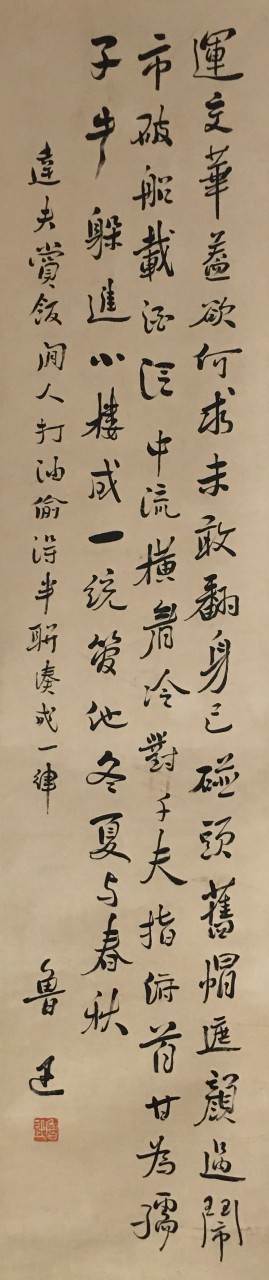 運交華蓋欲何求未敢翻身已碰頭舊帽遮顏過鬧
市破船載酒泛中流橫眉冷對千夫指俯首甘為孺
子牛躲進小樓成一統管他冬夏与春秋
達夫賞飯閒人打油偷得半聯湊成一律
魯迅